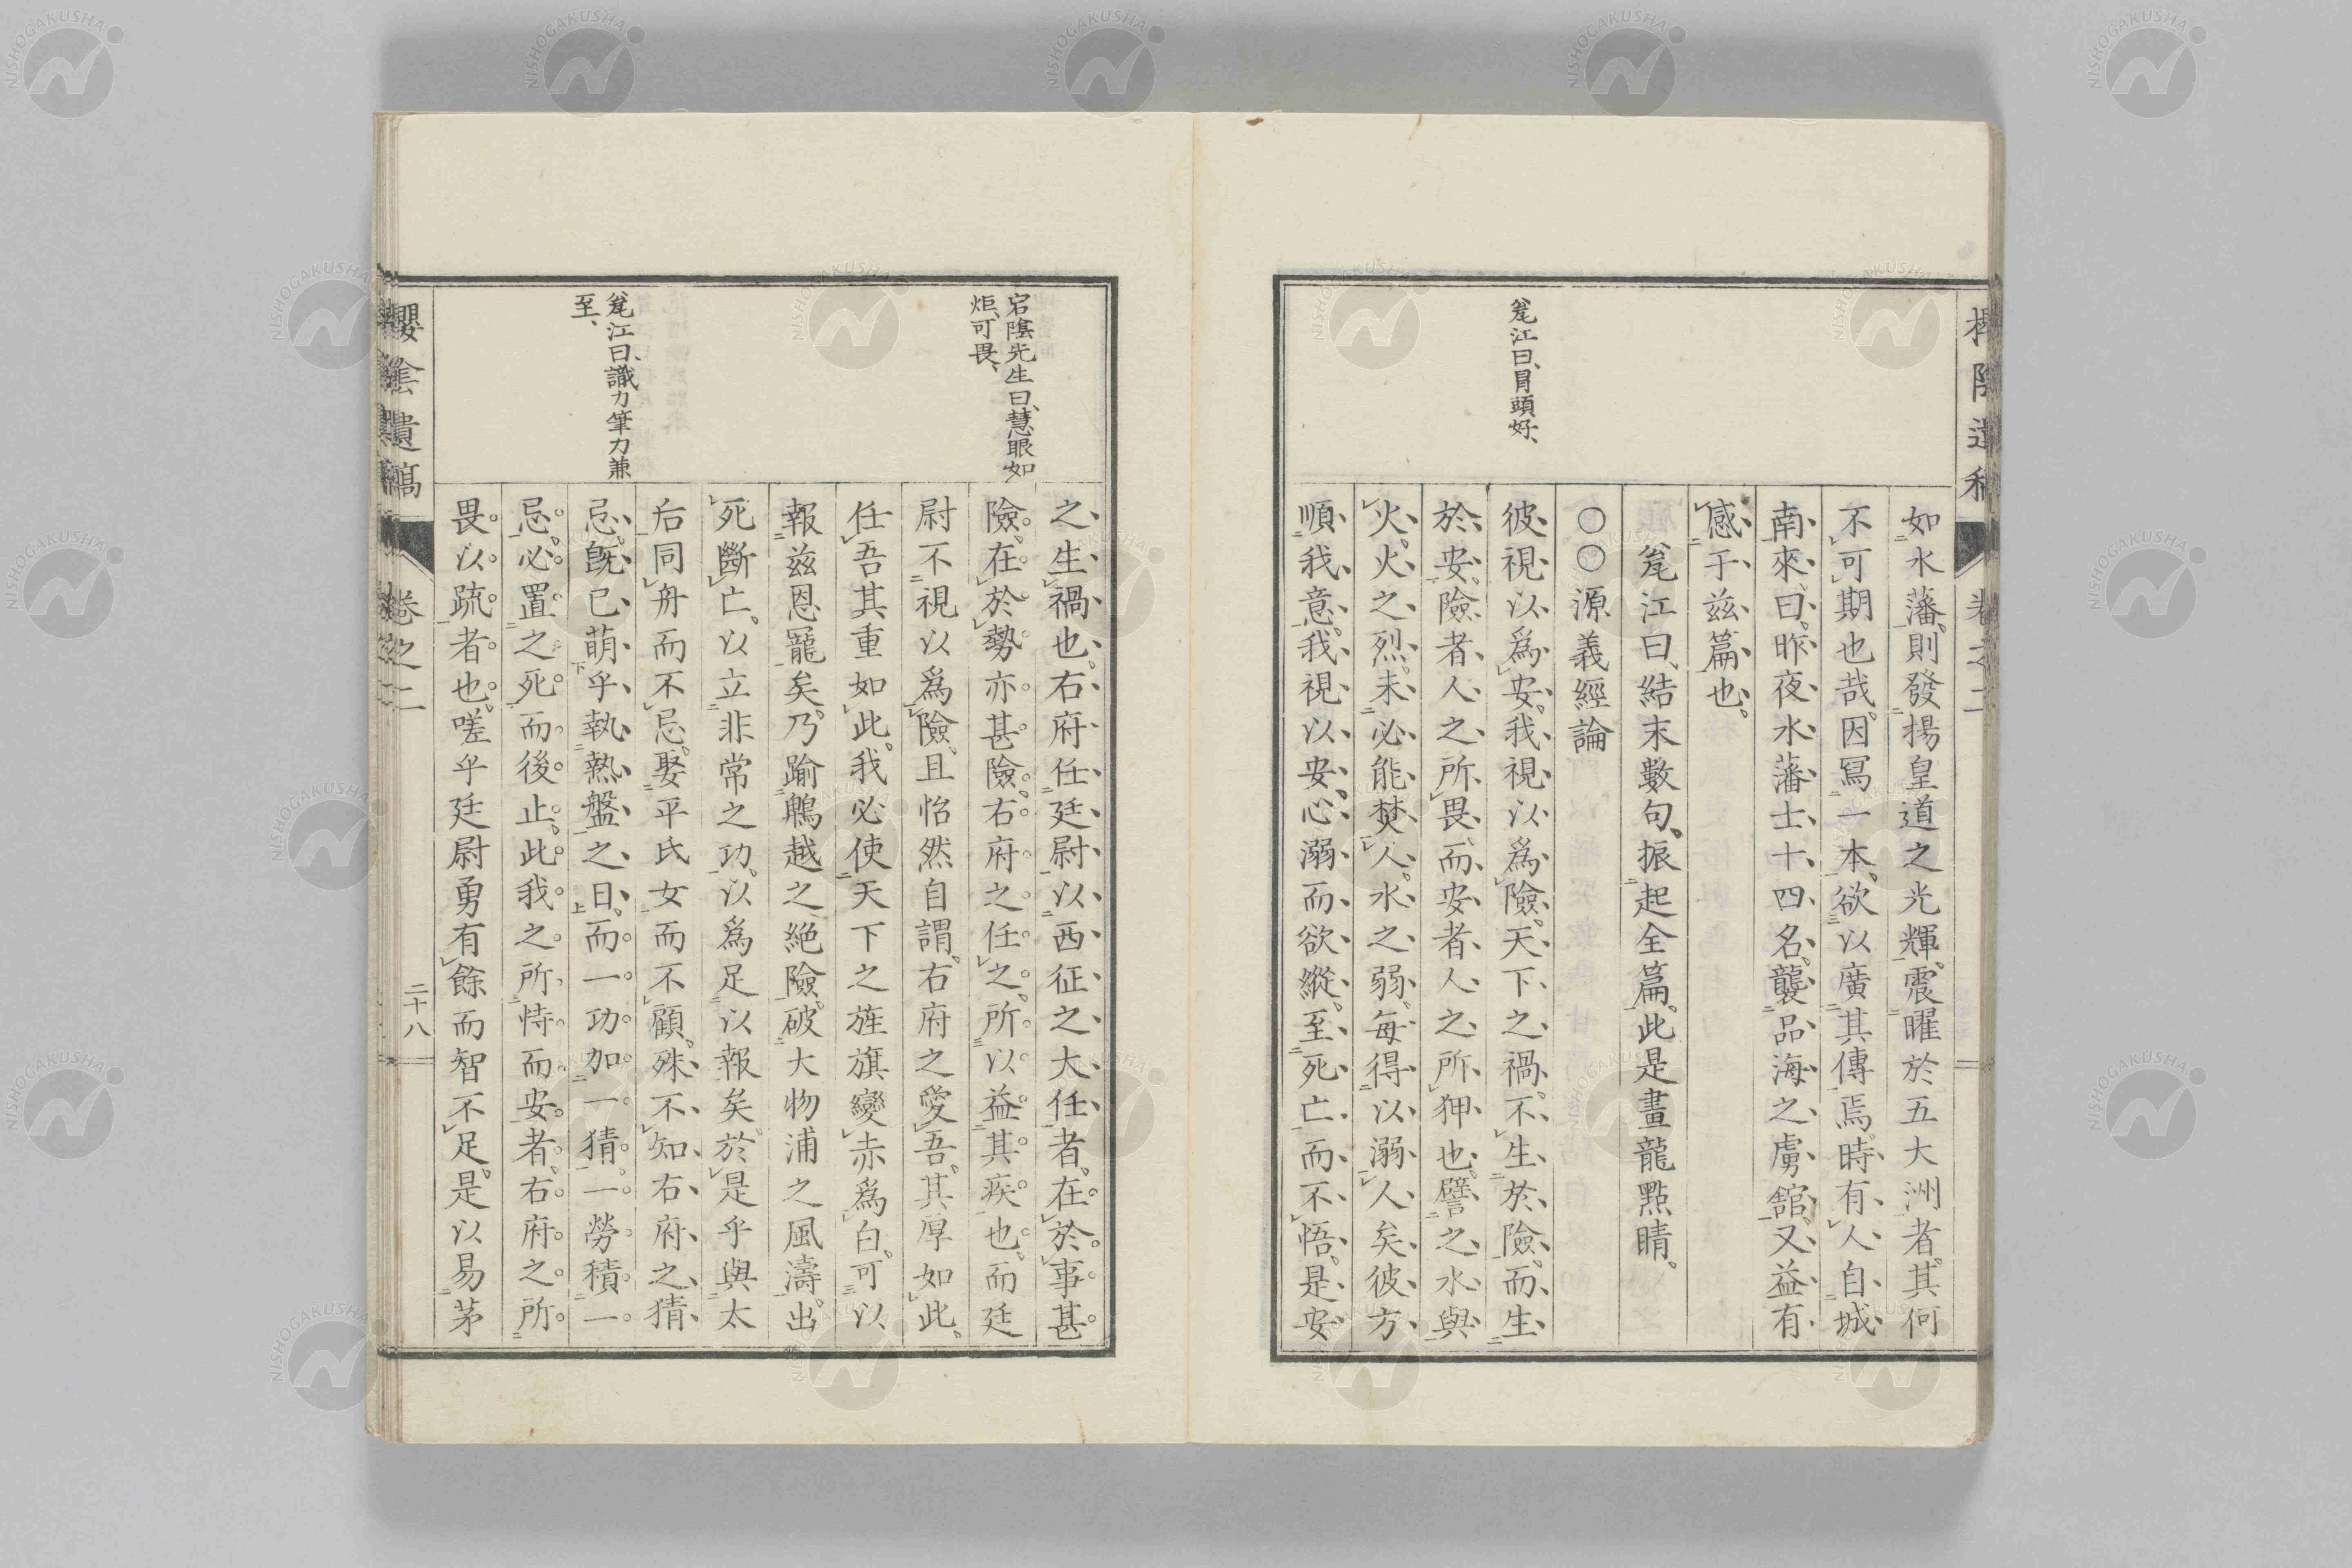 櫻陰遺稿 卷之二
甕江曰、冐頭好、
如水藩。則發揚皇道之光輝。震曜於五大洲者。其何
不可期也哉。因冩一本。欲以廣其傳焉。時有人自城
南來。曰。昨夜水藩士十四名。襲品海之虜舘。又益有
感于茲篇也。
甕江曰、結末數句。振起全篇。此是畫龍點睛。
〇〇源義經論
彼視以爲安。我視以爲險。天下之禍。不生於險。而生
於安。險者人之所畏。而安者人之所狎也。譬之水與
火。火之烈。未必能焚人。水之弱。每得以溺人矣。彼方
順我意。我視以安。心溺而欲縱。至死亡而不悟。是安
宕陰先生曰、慧眼如
炬、可畏、
甕江曰、識力筆力兼
至、
之生禍也。右府任廷尉以西征之大任者。在於事甚
險。在於勢亦甚險。右府之任之。所以益其疾也。而廷
尉不視以爲險。且怡然自謂。右府之愛吾。其厚如此。
任吾其重如此。我必使天下之旌旗變赤爲白。可以
報茲恩寵矣。乃踰鵯越之絕險。破大物浦之風濤。出
死斷亡。以立非常之功。以爲足以報矣。於是乎與太
后同舟而不忌。娶平氏女而不顧。殊不知右府之猜
忌。旣已萌乎執熱盤之日。而一功加一猜。一勞積一
忌。必置之死而後止。此我之所恃而安者。右府之所
畏以疏者也。嗟乎廷尉勇有餘而智不足。是以易茅
櫻陰遺稿 卷之二 二十八